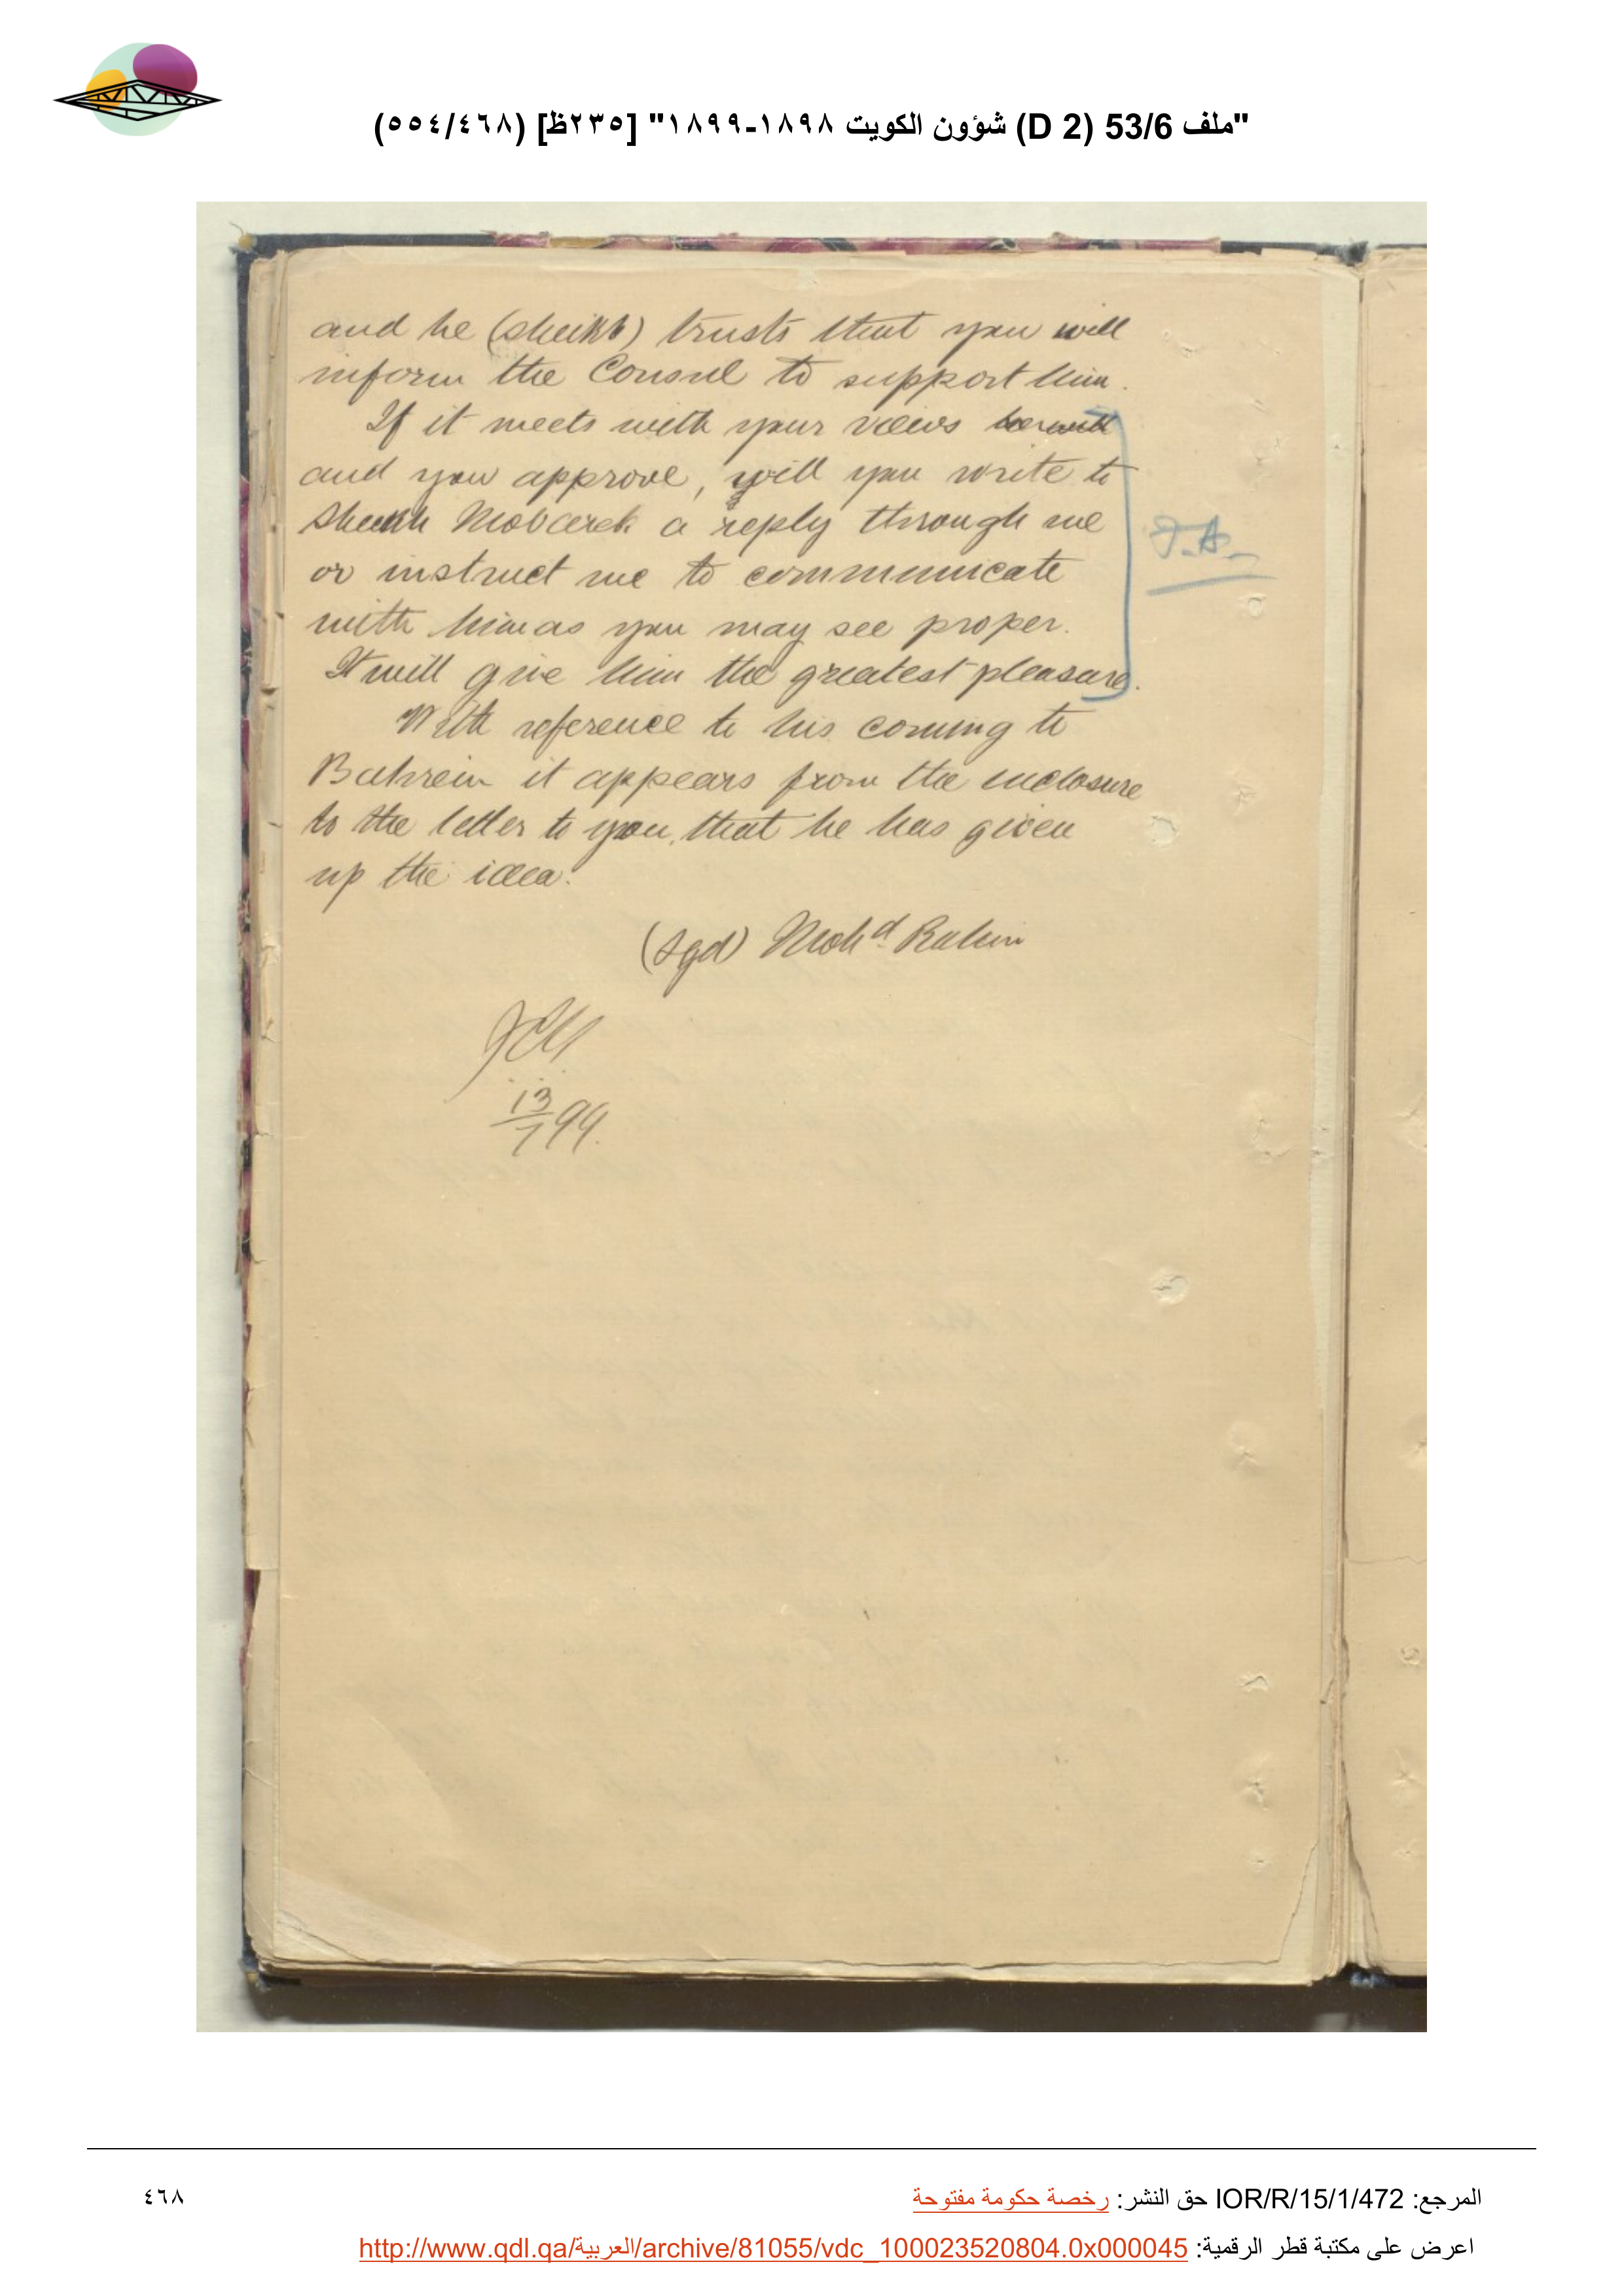 "ملف 53/6 (D 2) شؤون الكويت ١٨٩٨-١٨٩٩" [٢٣٥ظ] (٥٥٤/٤٦٨)
and he (Sheikh) trusts that you will
inform the Consul to support him.
If it meets with your views
and you approve, will you write to
Sheikh Mobarek a reply through me
or instruct me to communicate
with him as you may see proper.
It will give him the greatest pleasure.
With reference to his coming to
Bahrein it appears from the enclosure
to the letter to you, that he has given
up the idea.
(Sgd) Mohd Rahim
13/7 99.
المرجع: IOR/R/15/1/472 حق النشر: رخصة حكومة مفتوحة
٤٦٨
اعرض على مكتبة قطر الرقمية: http://www.qdl.qa/العربية/archive/81055/vdc_100023520804.0x000045